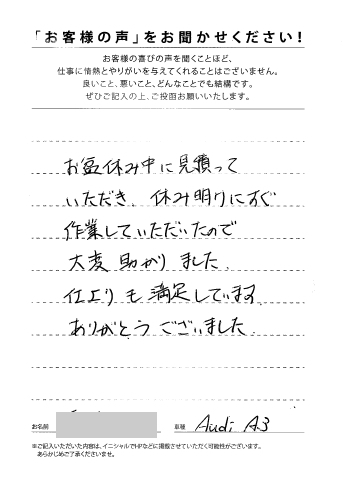 「お客様の声」をお聞かせください！
お客様の喜びの声を聞くことほど、
仕事に情熱とやりがいを与えてくれることはございません。
良いこと、悪いこと、どんなことでも結構です。
ぜひご記入の上、ご投函お願いいたします。
お盆休み中に見積って
いただき、休み明けにすぐ
作業していただいたので
大変助かりました。
仕上りも満足しています。
ありがとうございました。
お名前
車種 Audi A3
※ご記入いただいた内容は、イニシャルでHPなどに掲載させていただく可能性がございます。
あらかじめご了承くださいませ。